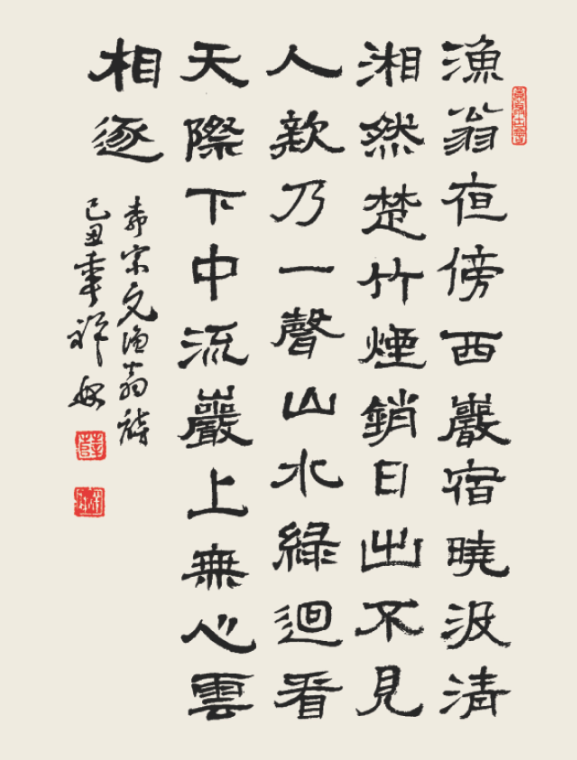 漁翁夜傍西巖宿曉汲清
湘然楚竹煙銷日出不見
人欸乃一聲山水綠迴看
天際下中流巖上無心雲
相逐
柳宗元漁翁詩
己丑年